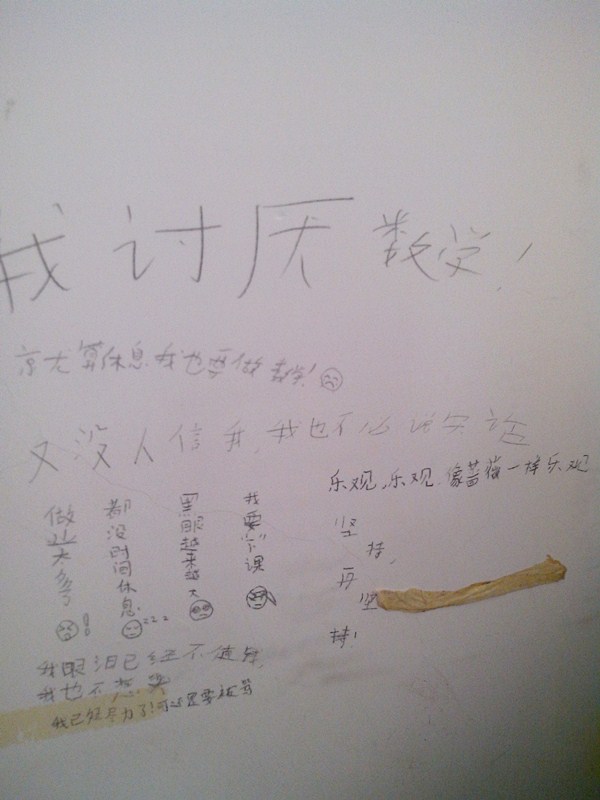 我讨厌数学！
就算休息我也要做数学！
又没人信我，我也不必说实话
乐观，乐观，像蔷薇一样乐观
做业太多了！
都没时间休息zzz
黑眼越来越大
我要下课
坚
持，
再
坚
持！
我眼泪已经不值钱
我也不想哭
我已经尽力了！可